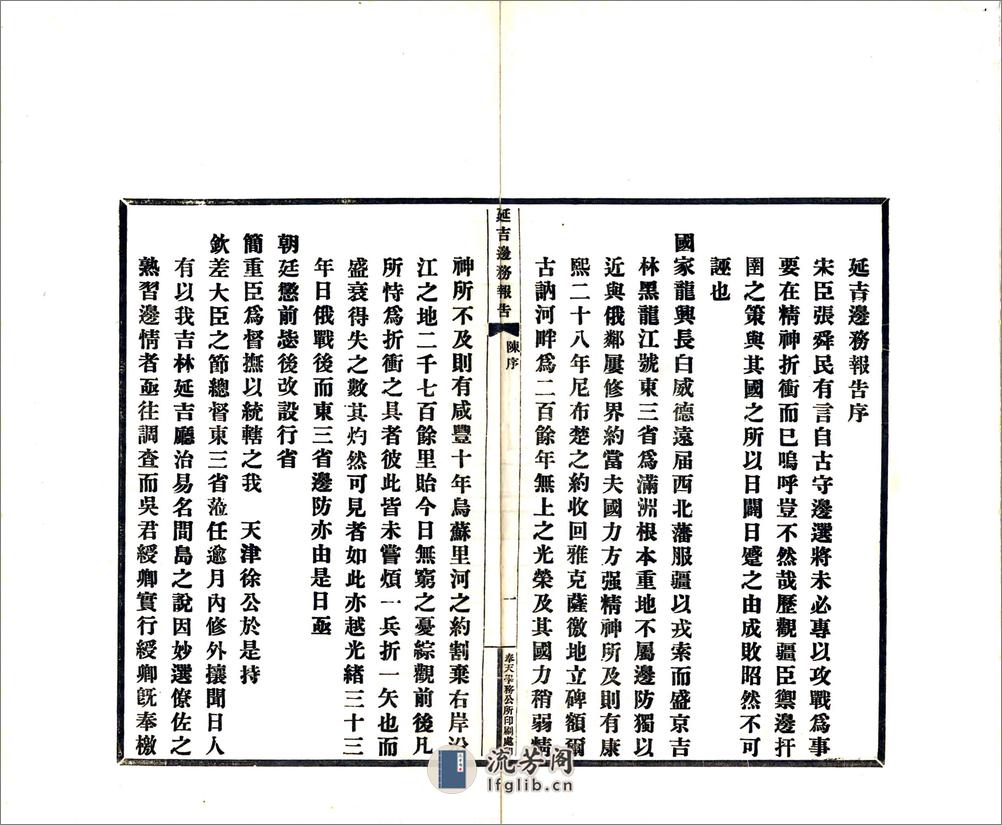 延吉邊務報告序
宋臣張舜民有言自古守邊選將未必專以攻戰爲事
要在精神折衝而已嗚呼豈不然哉歷觀疆臣禦邊扞
圉之策與其國之所以日闢日蹙之由成敗昭然不可
誣也
國家龍興長白威德遠届西北藩服疆以戎索而盛京吉
林黑龍江號東三省爲滿洲根本重地不屬邊防獨以
近與俄鄰屢修界約當夫國力方强精神所及則有康
熙二十八年尼布楚之約收回雅克薩徼地立碑額爾
古訥河畔爲二百餘年無上之光榮及其國力稍弱精
延吉邊務報告
陳序
一
奉天學務公所印刷處
神所不及則有咸豐十年烏蘇里河之約割棄右岸沿
江之地二千七百餘里貽今日無窮之憂綜觀前後凡
所恃爲折衝之具者彼此皆未嘗煩一兵折一矢也而
盛衰得失之數其灼然可見者如此亦越光緒三十三
年日俄戰後而東三省邊防亦由是日亟
朝廷懲前毖後改設行省
簡重臣爲督撫以統轄之我 天津徐公於是持
欽差大臣之節總督東三省蒞任逾月內修外攘聞日人
有以我吉林延吉廳治易名間島之說因妙選僚佐之
熟習邊情者亟往調查而吳君綬卿實行綬卿旣奉檄
流芳阁
lfglib.cn